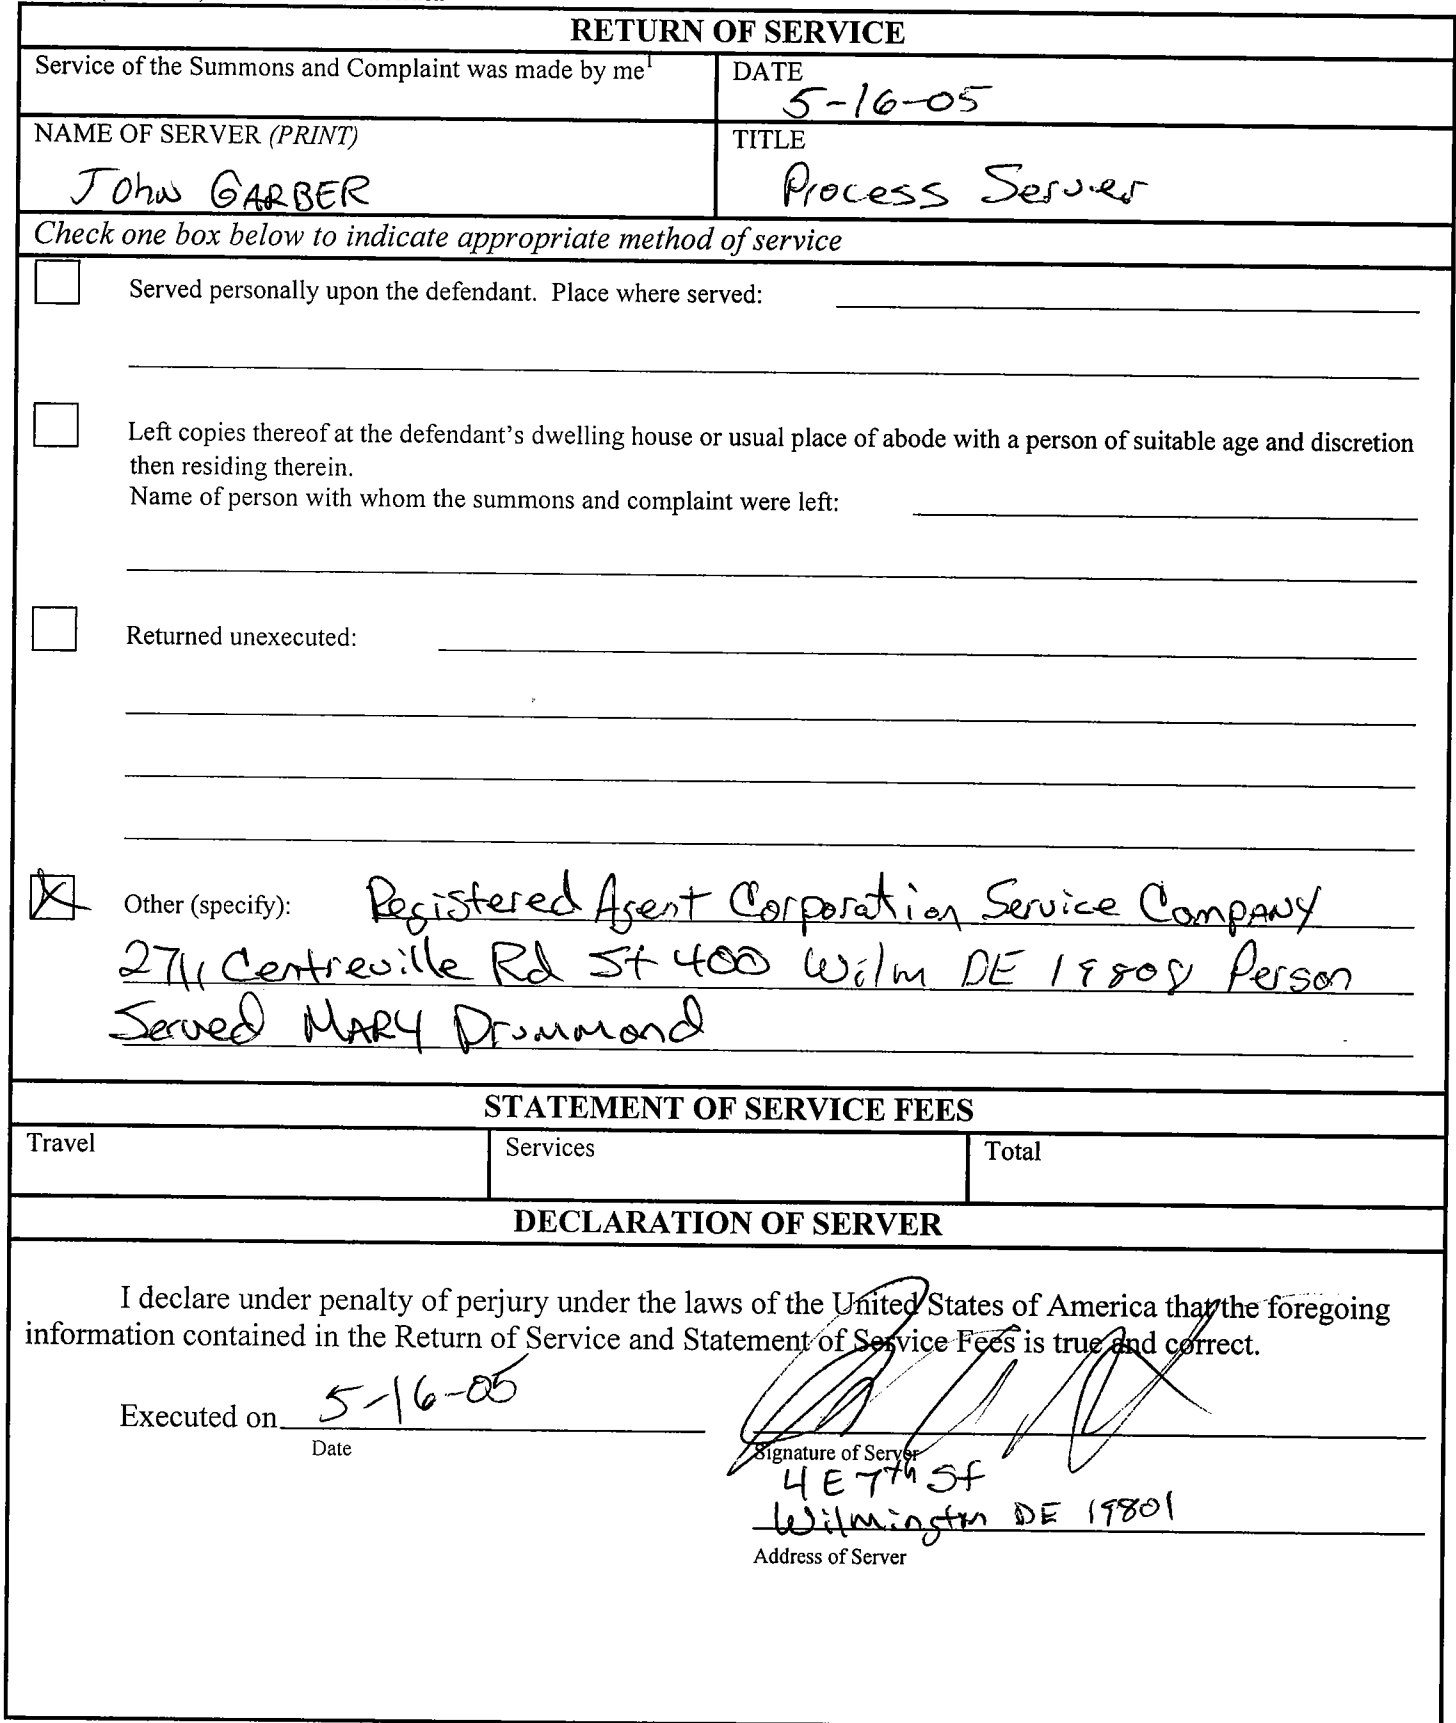 RETURN OF SERVICE
Service of the Summons and Complaint was made by me1
DATE
5-16-05
NAME OF SERVER (PRINT)
John GARBER
TITLE
Process Server
Check one box below to indicate appropriate method of service
Served personally upon the defendant. Place where served:
Left copies thereof at the defendant's dwelling house or usual place of abode with a person of suitable age and discretion
then residing therein.
Name of person with whom the summons and complaint were left:
Returned unexecuted:
Other (specify): Registered Agent Corporation Service Company
2711 Centreville Rd St 400 Wilm DE 19808 Person
Served MARY Drummond
STATEMENT OF SERVICE FEES
Travel
Services
Total
DECLARATION OF SERVER
I declare under penalty of perjury under the laws of the United States of America that the foregoing
information contained in the Return of Service and Statement of Service Fees is true and correct.
Executed on 5-16-05
Date
Signature of Server
4 E 7th St
Wilmington DE 19801
Address of Server